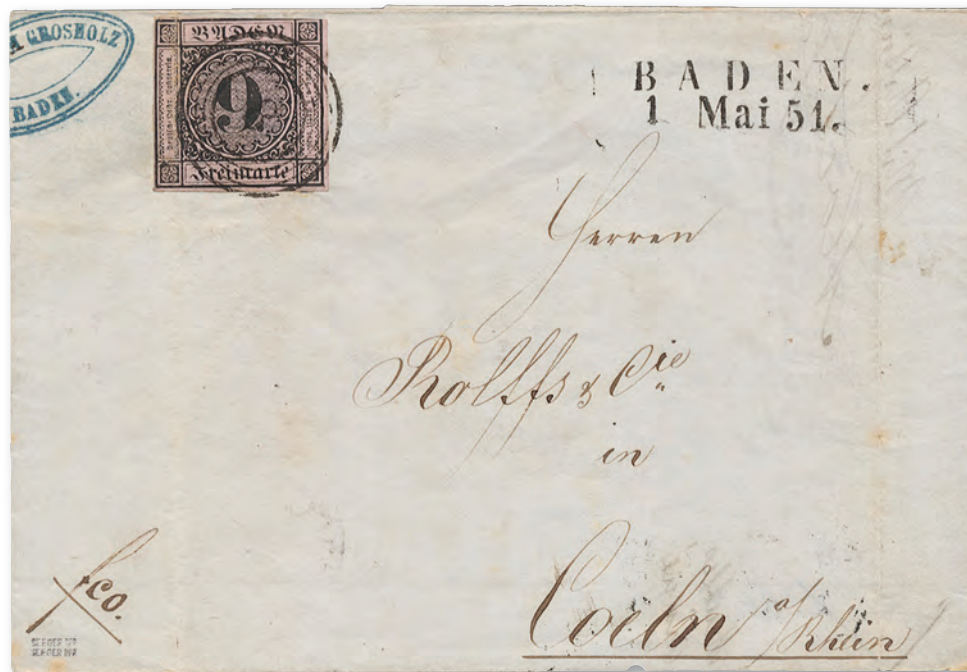 A GROSHOLZ
BADEN.
BADEN
9
Freimarke
BADEN.
1 Mai 51.
Herren
Rolffs & Cie
in
Coeln a/Rhein
fco.